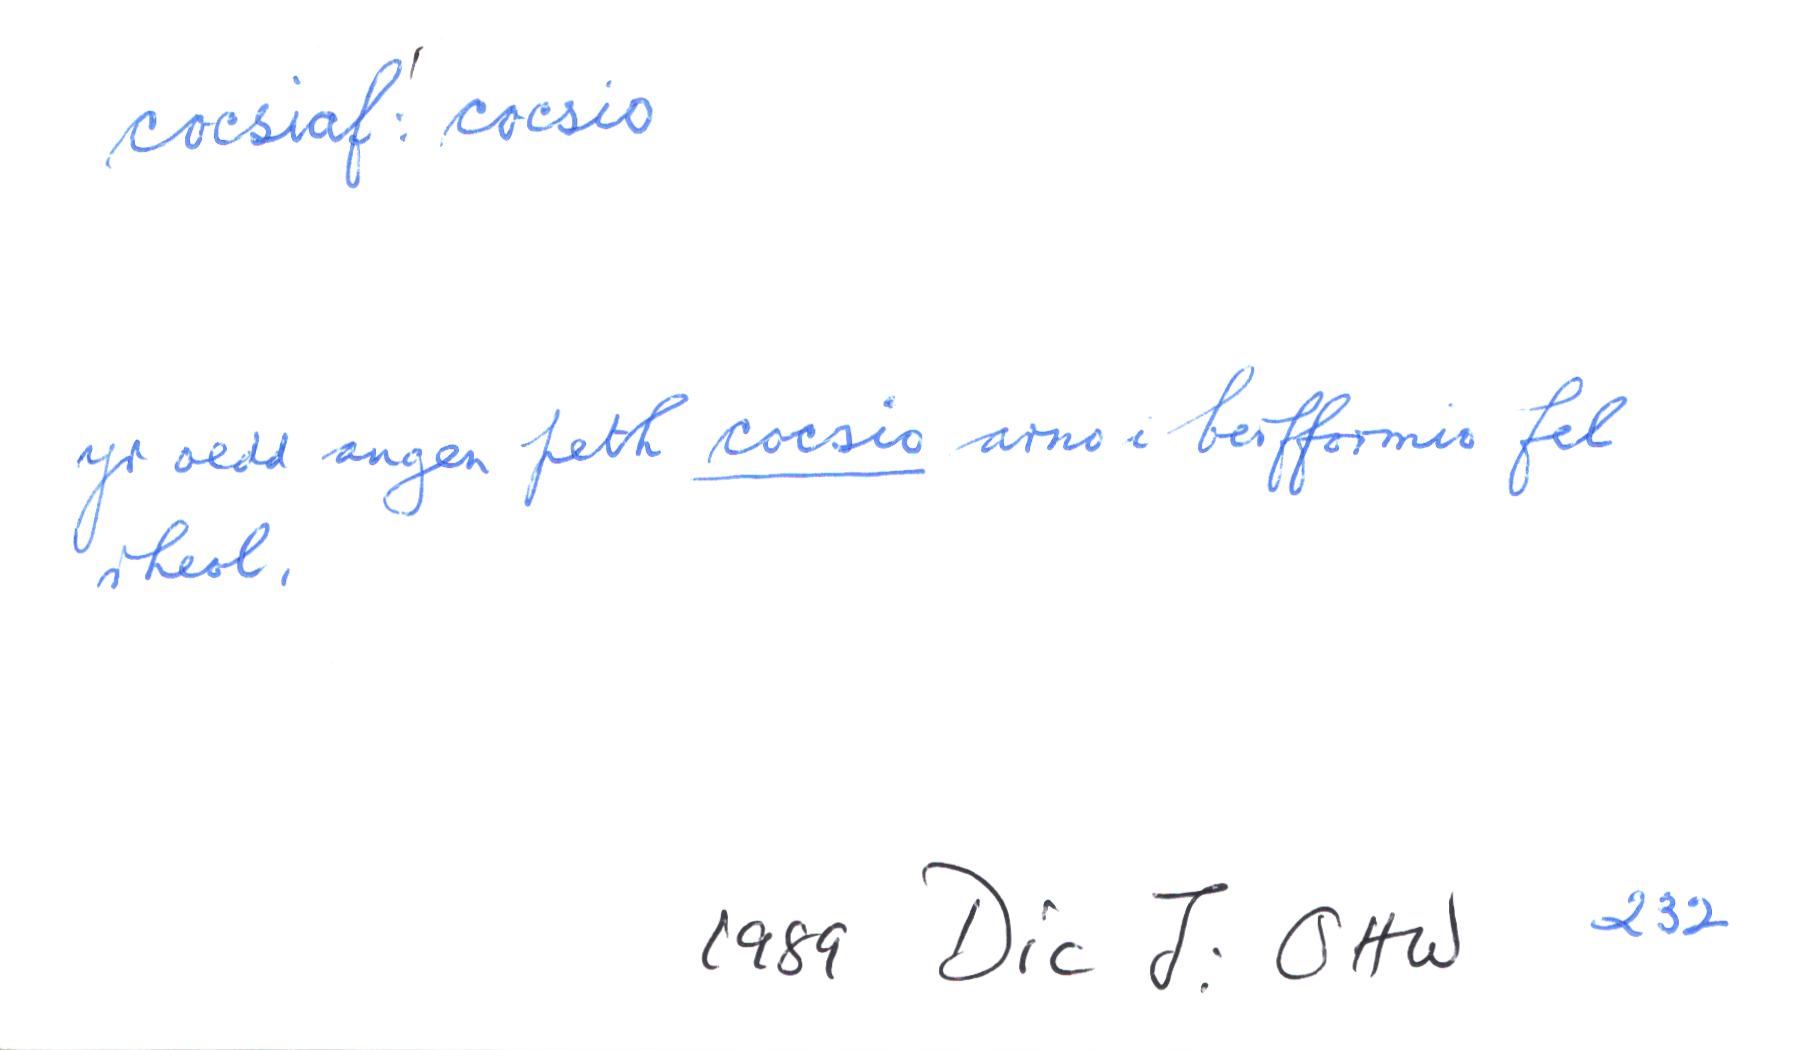 cocsiaf¹: cocsio
yr oedd angen peth cocsio arno i berfformio fel
rheol.
1989 Dic J: OHW 232